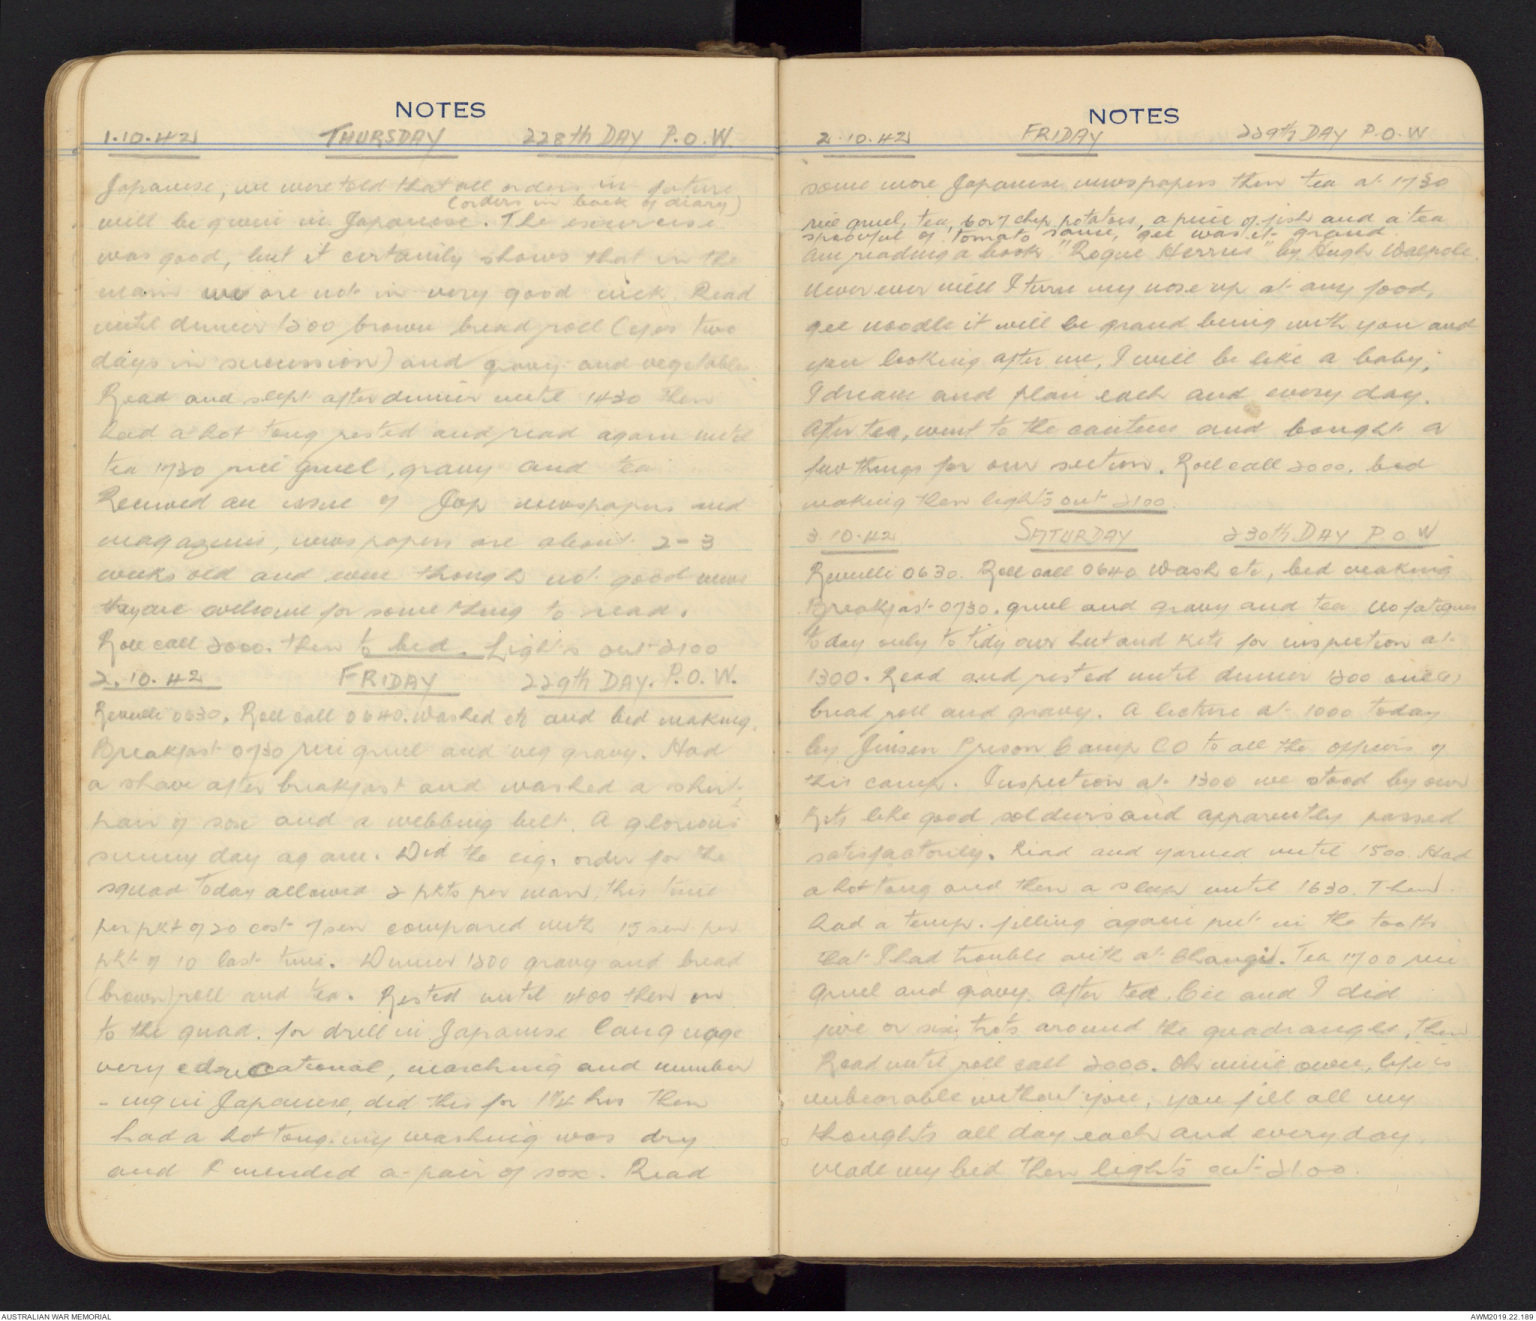 NOTES
1.10.42 THURSDAY 228th DAY P.O.W.
Japanese, we were told that all orders in future
(orders in back of diary)
will be given in Japanese. The exercise
was good, but it certainly shows that in the
main we are not in very good nick. Read
until dinner 1200 brown bread roll (yes two
days in succession) and gravy and vegetables
Read and slept after dinner until 1430 then
had a hot tong rested and read again until
tea 1730 rice gruel, gravy and tea.
Received an issue of Jap newspapers and
magazines, newspapers are about 2-3
weeks old and even though not good news
they are welcome for something to read.
Roll call 2000. then to bed. Lights out 2100
2.10.42 FRIDAY 229th DAY. P.O.W.
Reveille 0630. Roll call 0640. washed etc and bed making.
Breakfast 0730 rice gruel and veg gravy. Had
a shave after breakfast and washed a shirt
pair of sox and a webbing belt. A glorious
sunny day again. Did the cig. order for the
squad today allowed 2 pkts per man this time
per pkt of 20 cost 7 sen compared with 15 sen per
pkt of 10 last time. Dinner 1200 gravy and bread
(brown) roll and tea. Rested until 1400 then on
to the quad. for drill in Japanese language
very educational, marching and number
-ing in Japanese, did this for 1¼ hrs then
had a hot tong. my washing was dry
and I mended a pair of sox. Read
NOTES
2.10.42 FRIDAY 229th DAY P.O.W
some more Japanese newspapers then tea at 1730
rice gruel, tea, 6 or 7 chip potatoes, a piece of fish and a tea
spoonful of tomato sauce, gee was it grand.
Am reading a book "Rogue Herries" by Hugh Walpole.
Never ever will I turn my nose up at any food,
gee noodle it will be grand being with you and
you looking after me, I will be like a baby,
I dream and plan each and every day.
After tea, went to the canteen and bought a
few things for our section. Roll call 2000. bed
making then lights out 2100.
3.10.42 SATURDAY 230th DAY P.O.W
Reveille 0630. Roll call 0640 Wash etc, bed making
Breakfast 0730. gruel and gravy and tea No fatigues
today only to tidy our hut and kits for inspection at
1300. Read and rested until dinner 1200
bread roll and gravy. A lecture at 1000 today
by Jinsen Prison Camp CO to all the officers of
this camp. Inspection at 1300 we stood by our
kits like good soldiers and apparently passed
satisfactorily. Read and yarned until 1500. Had
a hot tong and then a sleep until 1630. Then
had a temp. filling again put in the tooth
that I had trouble with at Changi. Tea 1700 rice
gruel and gravy. After tea and I did
five or six trots around the quadrangle, then
Read until roll call 2000. Oh mine own, life is
unbearable without you, you fill all my
thoughts all day each and every day.
Made my bed then lights out 2100.
AUSTRALIAN WAR MEMORIAL
AWM2019.22.189